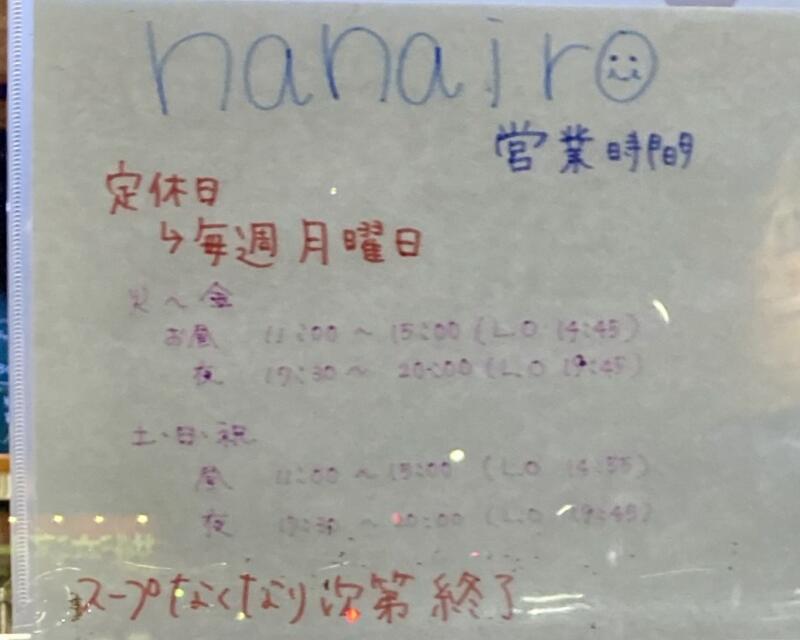 nanairo
営業時間
定休日
↳毎週月曜日
火〜金
お昼 11:00〜15:00(L.O 14:45)
夜 17:30〜20:00(L.O 19:45)
土・日・祝
昼 11:00〜15:00(L.O
夜 17:30〜20:00(L.O 19:45)
スープなくなり次第終了